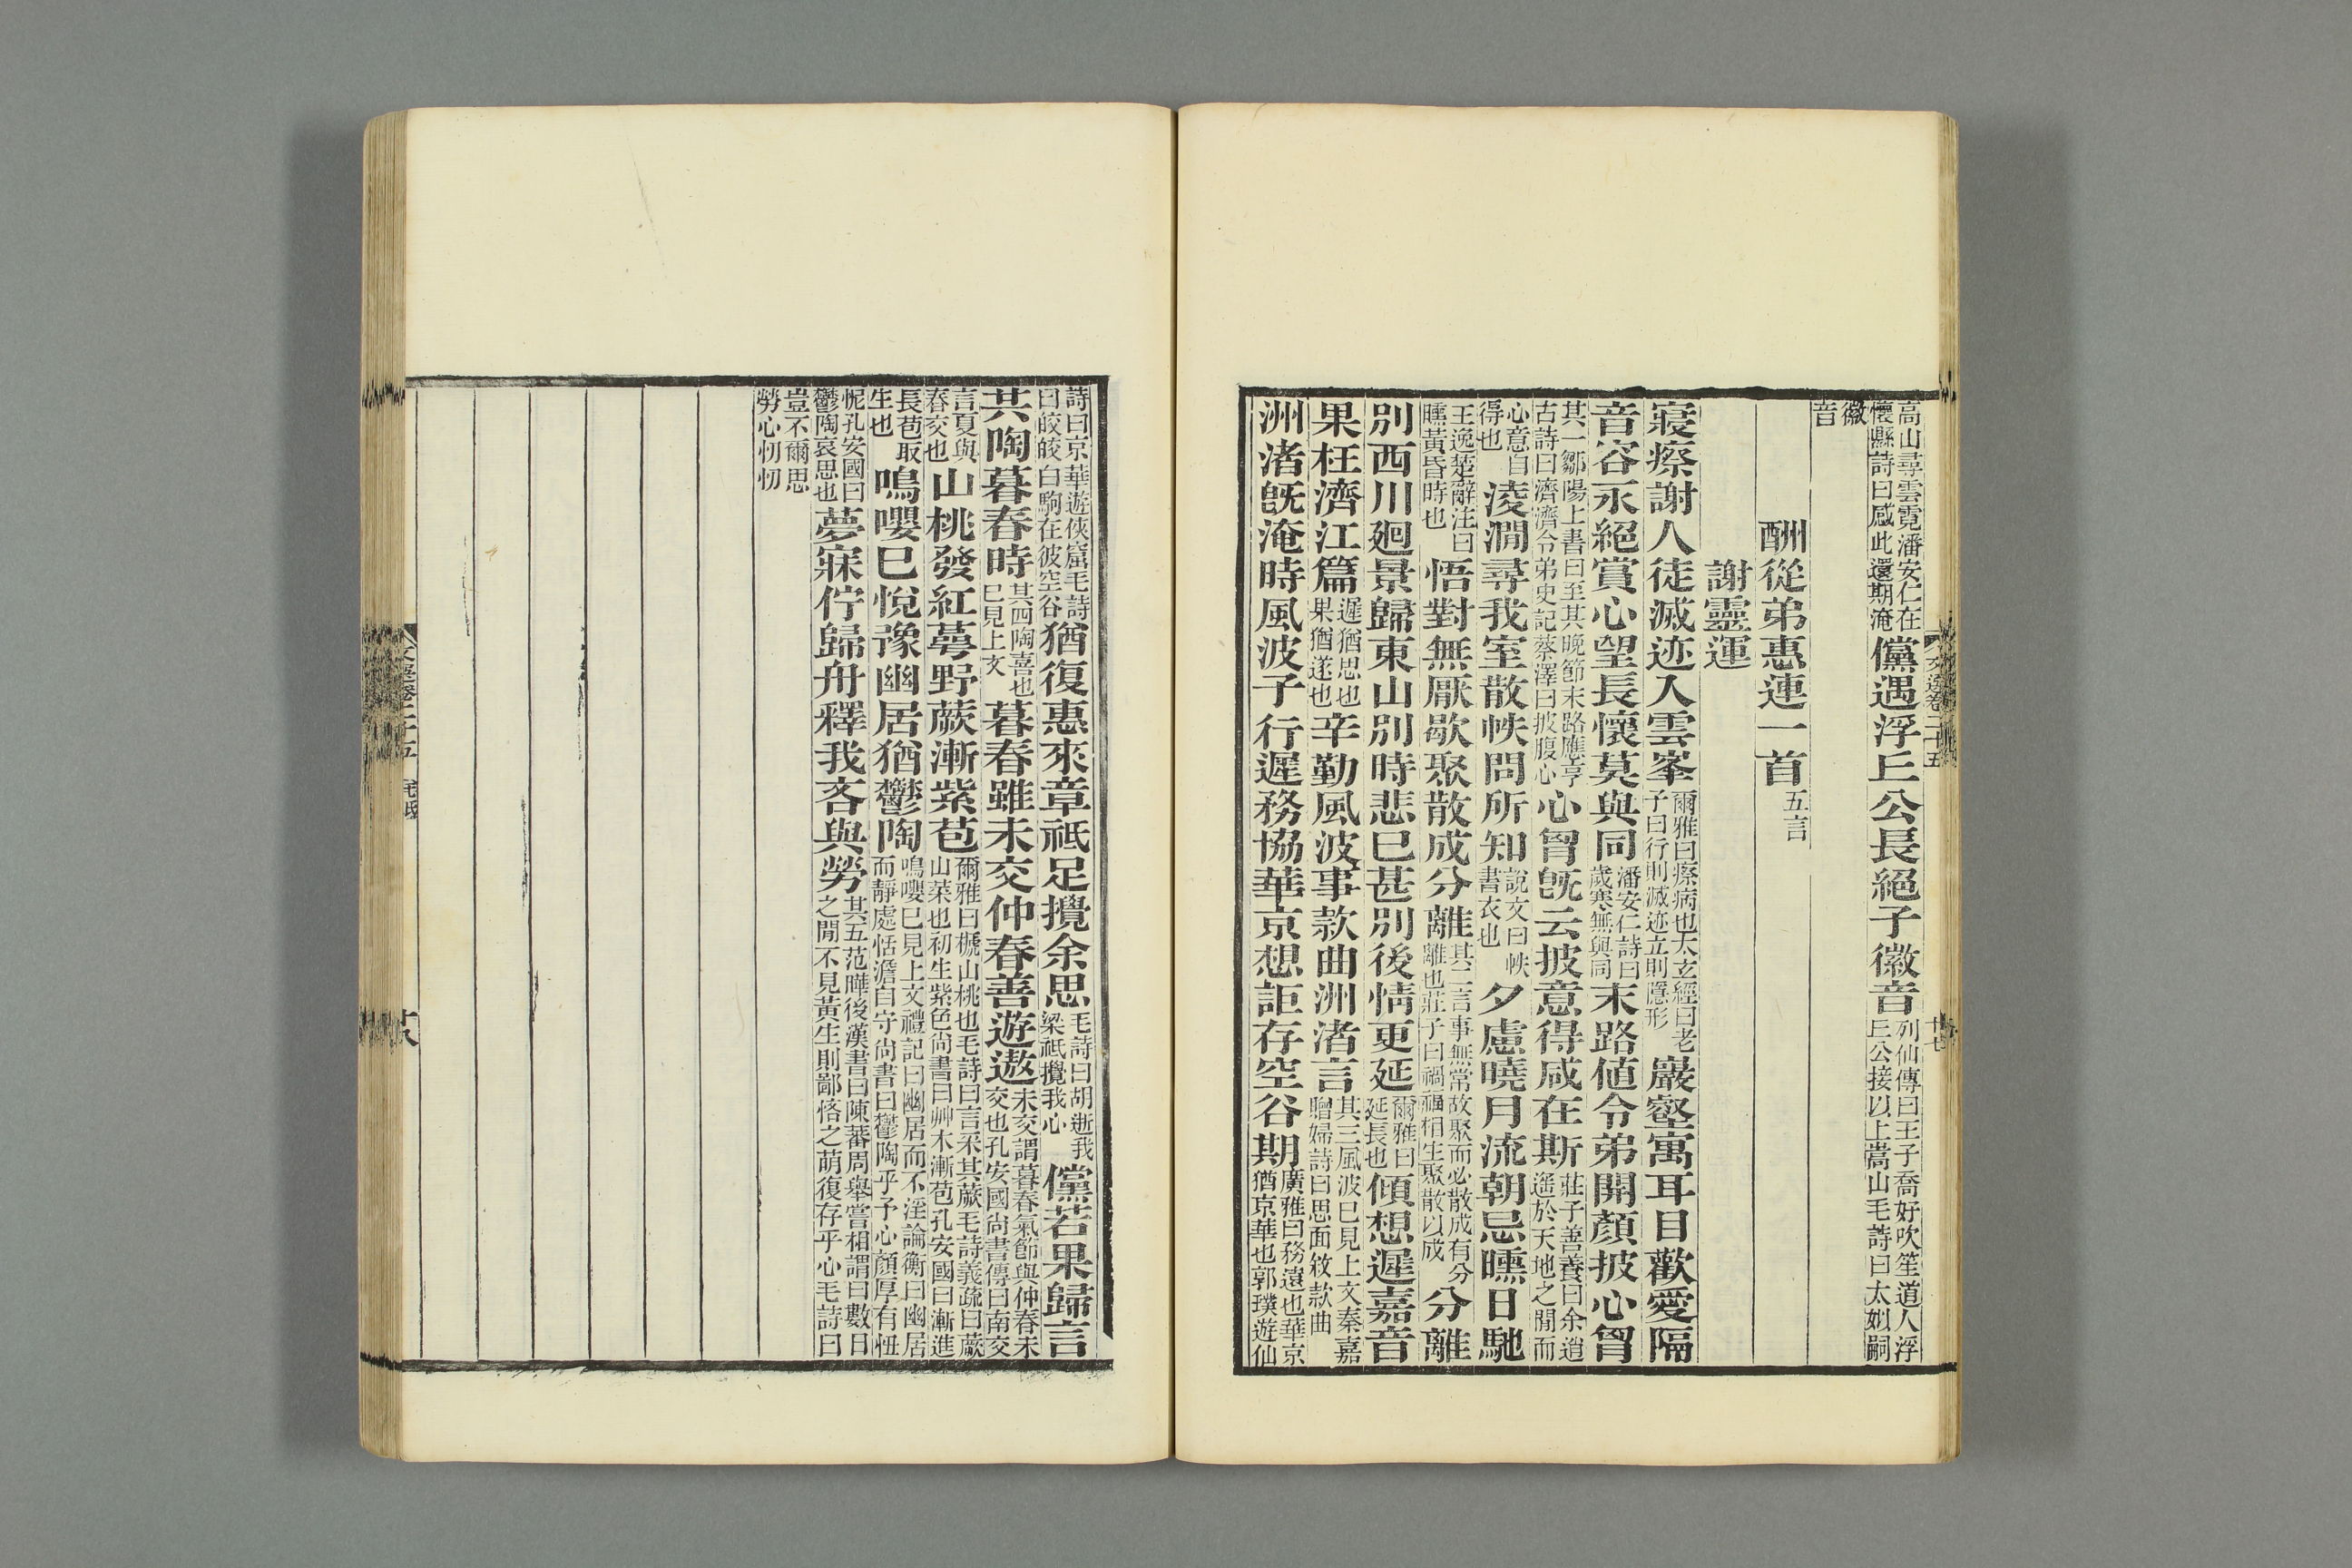 高山尋雲霓潘安仁在懷縣詩曰感此還期淹儻遇浮丘公長絕子徽音列仙傳曰王子喬好吹笙道人浮丘公接以上嵩山毛詩曰太姒嗣
徽音
酬從弟惠連一首五言
謝靈運
寢瘵謝人徒滅迹入雲峯爾雅曰瘵病也太玄經曰老子曰行則滅迹立則隱形巖壑寓耳目歡愛隔
音容永絕賞心望長懷莫與同潘安仁詩曰歲寒無與同末路値令弟開顏披心胷
其一鄒陽上書曰至其晚節末路應亨古詩曰濟濟令弟史記蔡澤曰披腹心心胷旣云披意得咸在斯莊子善養曰余逍遙於天地之閒而
心意自得也淩澗尋我室散帙問所知說文曰帙書衣也夕慮曉月流朝忌曛日馳
王逸楚辭注曰曛黃昏時也悟對無厭歇聚散成分離其二言事無常故聚而必散成有分離也莊子曰禍福相生聚散以成分離
別西川廻景歸東山別時悲已甚別後情更延爾雅曰延長也傾想遲嘉音
果枉濟江篇遲猶思也果猶遂也辛勤風波事款曲洲渚言其三風波已見上文秦嘉贈婦詩曰思面敘款曲
洲渚旣淹時風波子行遲務協華京想詎存空谷期廣雅曰務遠也華京猶京華也郭璞遊仙
詩曰京華遊俠窟毛詩曰皎皎白駒在彼空谷猶復惠來章祗足攪余思毛詩曰胡逝我梁祗攪我心儻若果歸言
共陶暮春時其四陶喜也已見上文暮春雖未交仲春善遊遨未交謂暮春氣節與仲春未交也孔安國尙書傳曰南交
言夏與春交也山桃發紅萼野蕨漸紫苞爾雅曰榹山桃也毛詩曰言采其蕨毛詩義疏曰蕨山菜也初生紫色尙書曰艸木漸苞孔安國曰漸進
長苞取生也鳴嚶已悅豫幽居猶鬱陶鳴嚶已見上文禮記曰幽居而不淫論衡曰幽居而靜處恬澹自守尙書曰鬱陶乎予心顏厚有忸
怩孔安國曰鬱陶哀思也夢寐佇歸舟釋我吝與勞其五范曄後漢書曰陳蕃周舉嘗相謂曰數日之閒不見黃生則鄙悋之萌復存乎心毛詩曰
豈不爾思勞心忉忉
文選卷二十五
十七
十八